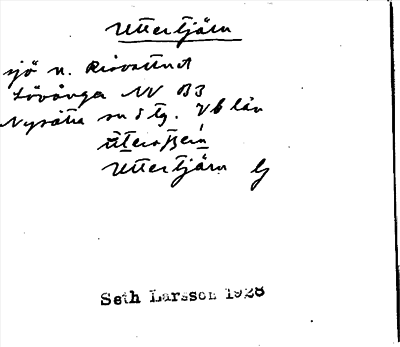 Uttertjärn
sjö n. Risvattnet
Lövånger NV B3
Nysätra sn o tg. Vb län
Uttertjärn G
Seth Larsson 1928